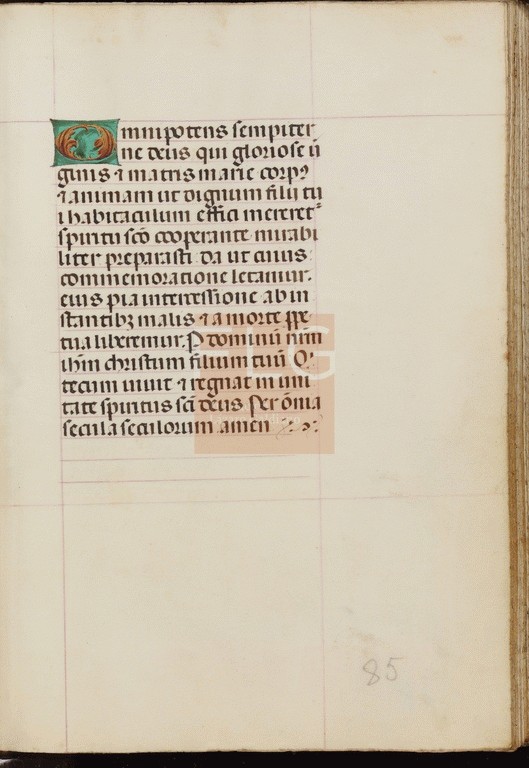 Omnipotens sempiter
ne deus qui gloriose ū
ginis ⁊ matris marie corpꝰ
⁊ animam ut dignum filij tu
i habitaculum effici mereret᷑
spiritu scō cooperante mirabi
liter preparasti da ut cuius
commemoratione letamur.
eius pia intercessione ab in
stantibꝫ malis ⁊ a morte ꝑpe
tua liberemur. P dominū nrm̄
ihm̄ christum filium tuū. Q.
tecum uiuit ⁊ regnat in uni
tate spiritus scī deus Per ōnia
secula seculorum amen
FLG
85